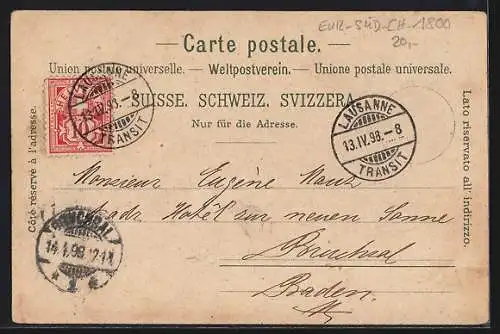 EUR-SÜD-CH-1800
20,-
Carte postale.
Union postale universelle. — Weltpostverein. — Unione postale universale.
SUISSE. SCHWEIZ. SVIZZERA.
Nur für die Adresse.
Côté réservé à l'adresse.
Lato riservato all' indirizzo.
10
LAUSANNE
13.IV.98.–8
TRANSIT
LAUSANNE
13.IV.98.–8
TRANSIT
Monsieur Eugène
Hôtel zur neuen Sonne
Bruchsal
Baden
BRUCHSAL
14.4.98